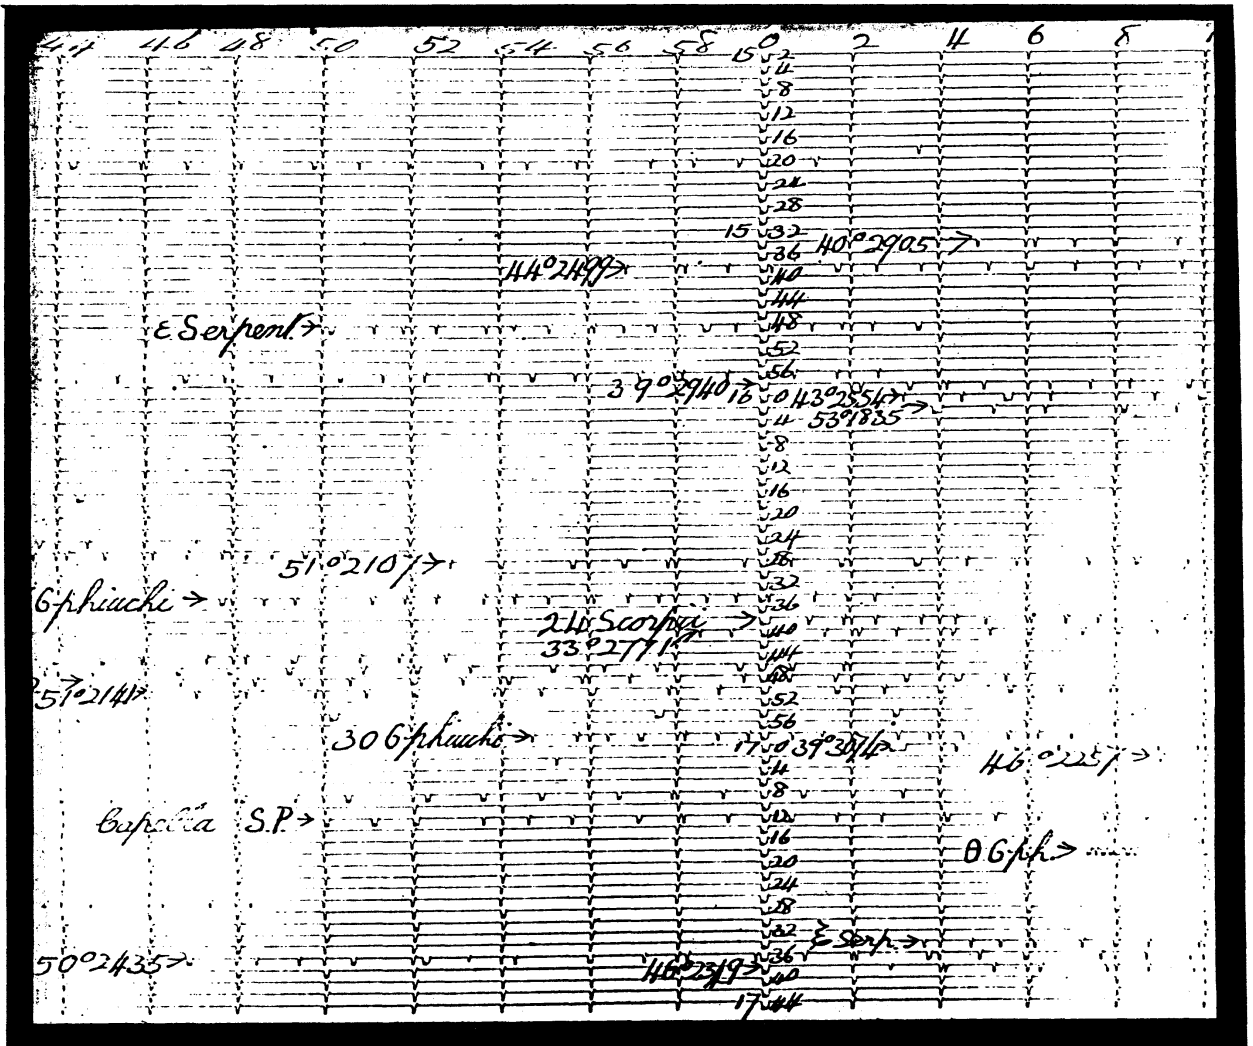 44 46 48 50 52 54 56 58 0 2 4 6 8
15 2
4
8
12
16
20
24
28
15 32 40°2905
36
44°2499 40
44
ε Serpent. 48
52
56
39°2940 16 0 43°2554
4 53°1835
8
12
16
20
24
51°2107 28
32
Ophiuchi 36
24 Scorpii 40
33°2771 44
48
51°2141 52
56
30 Ophiuchi 17 0 39°3074
46°2251
4
8
Capella S.P. 12
16
20 θ Oph.
24
28
32 ξ Serp.
50°2435 36
46°2319 40
17 44